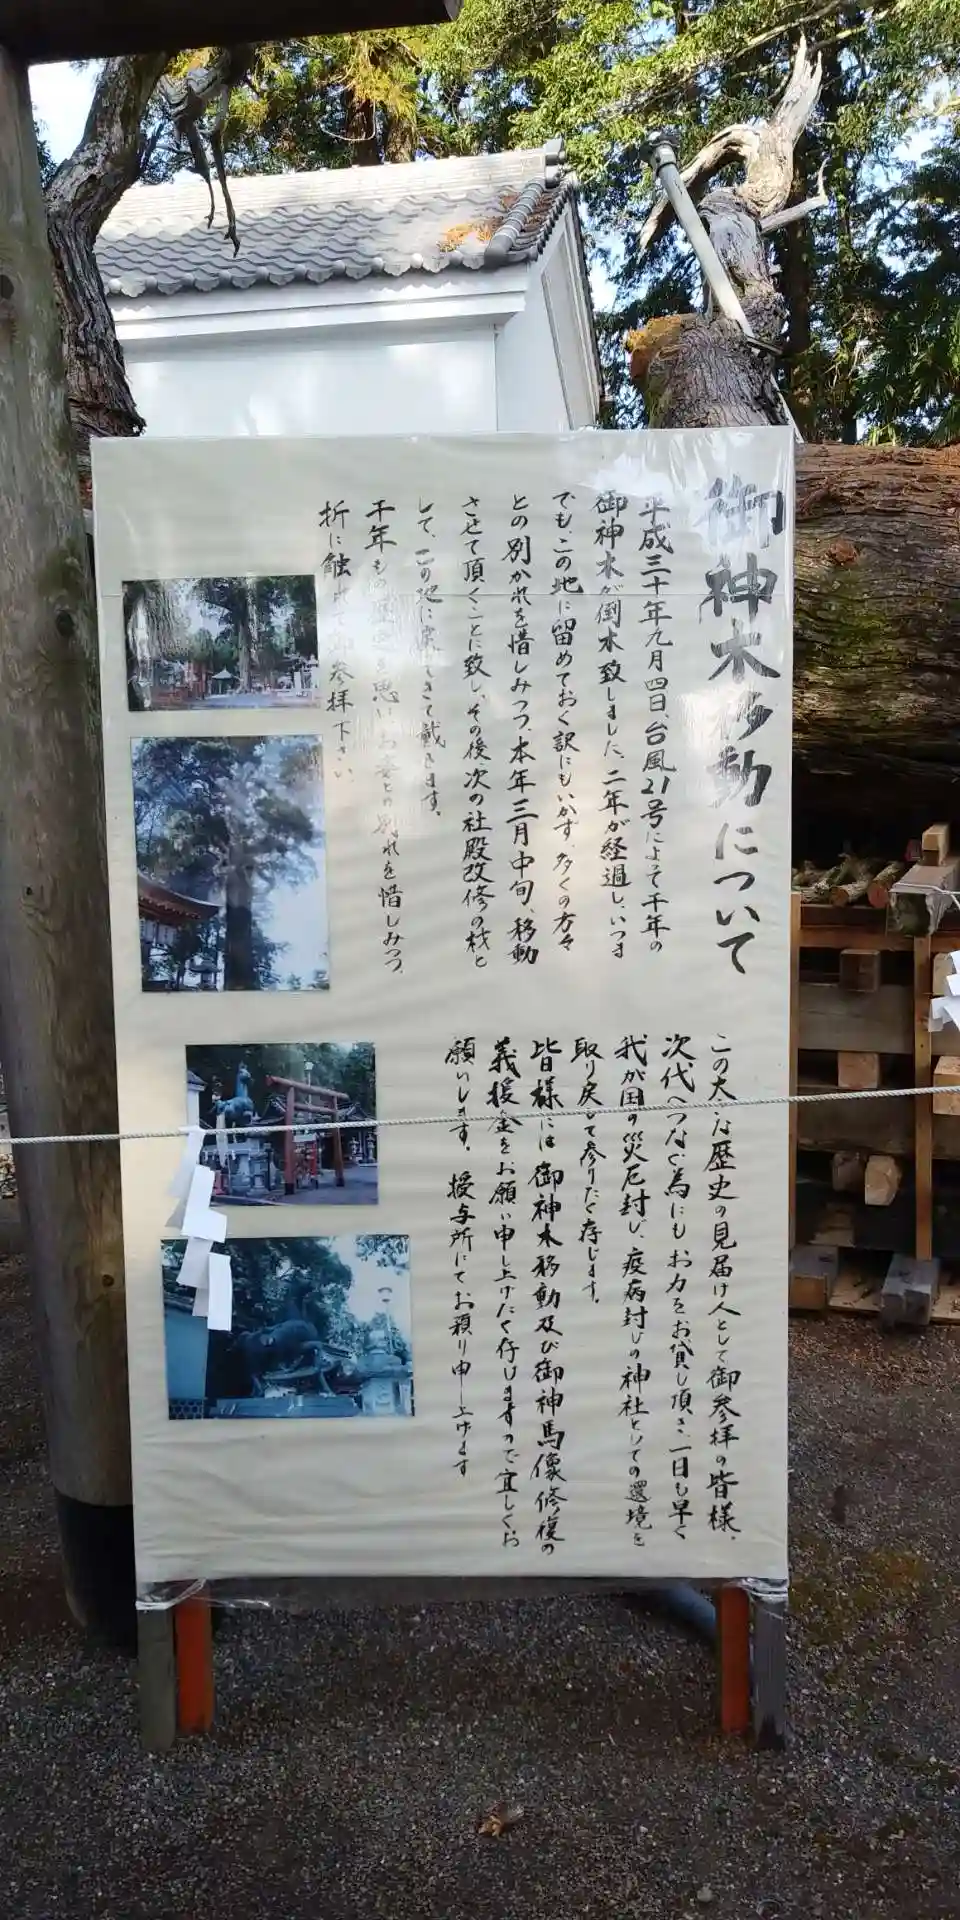 御神木移動について
平成三十年九月四日、台風21号によって千年の
御神木が倒木致しました。二年が経過し、いつま
でも、この地に留めておく訳にもいかず、多くの方々
との別かれを惜しみつつ、本年三月中旬、移動
させて頂くことに致し、その後次の社殿改修の材と
して、この地に戻ってきて戴きます。
千年もの歴史を思い、お姿との別れを惜しみつつ、
折に触れて御参拝下さい。
この大いな歴史の見届け人として御参拝の皆様、
次代へつなぐ為にもお力をお貸し頂き、一日も早く
我が国の災厄封じ、疫病封じの神社としての還境を
取り戻して参りたく存じます。
皆様には御神木移動及び御神馬像修復の
義援金をお願い申し上げたく存じますので宜しくお
願いします。授与所にてお預り申し上げます